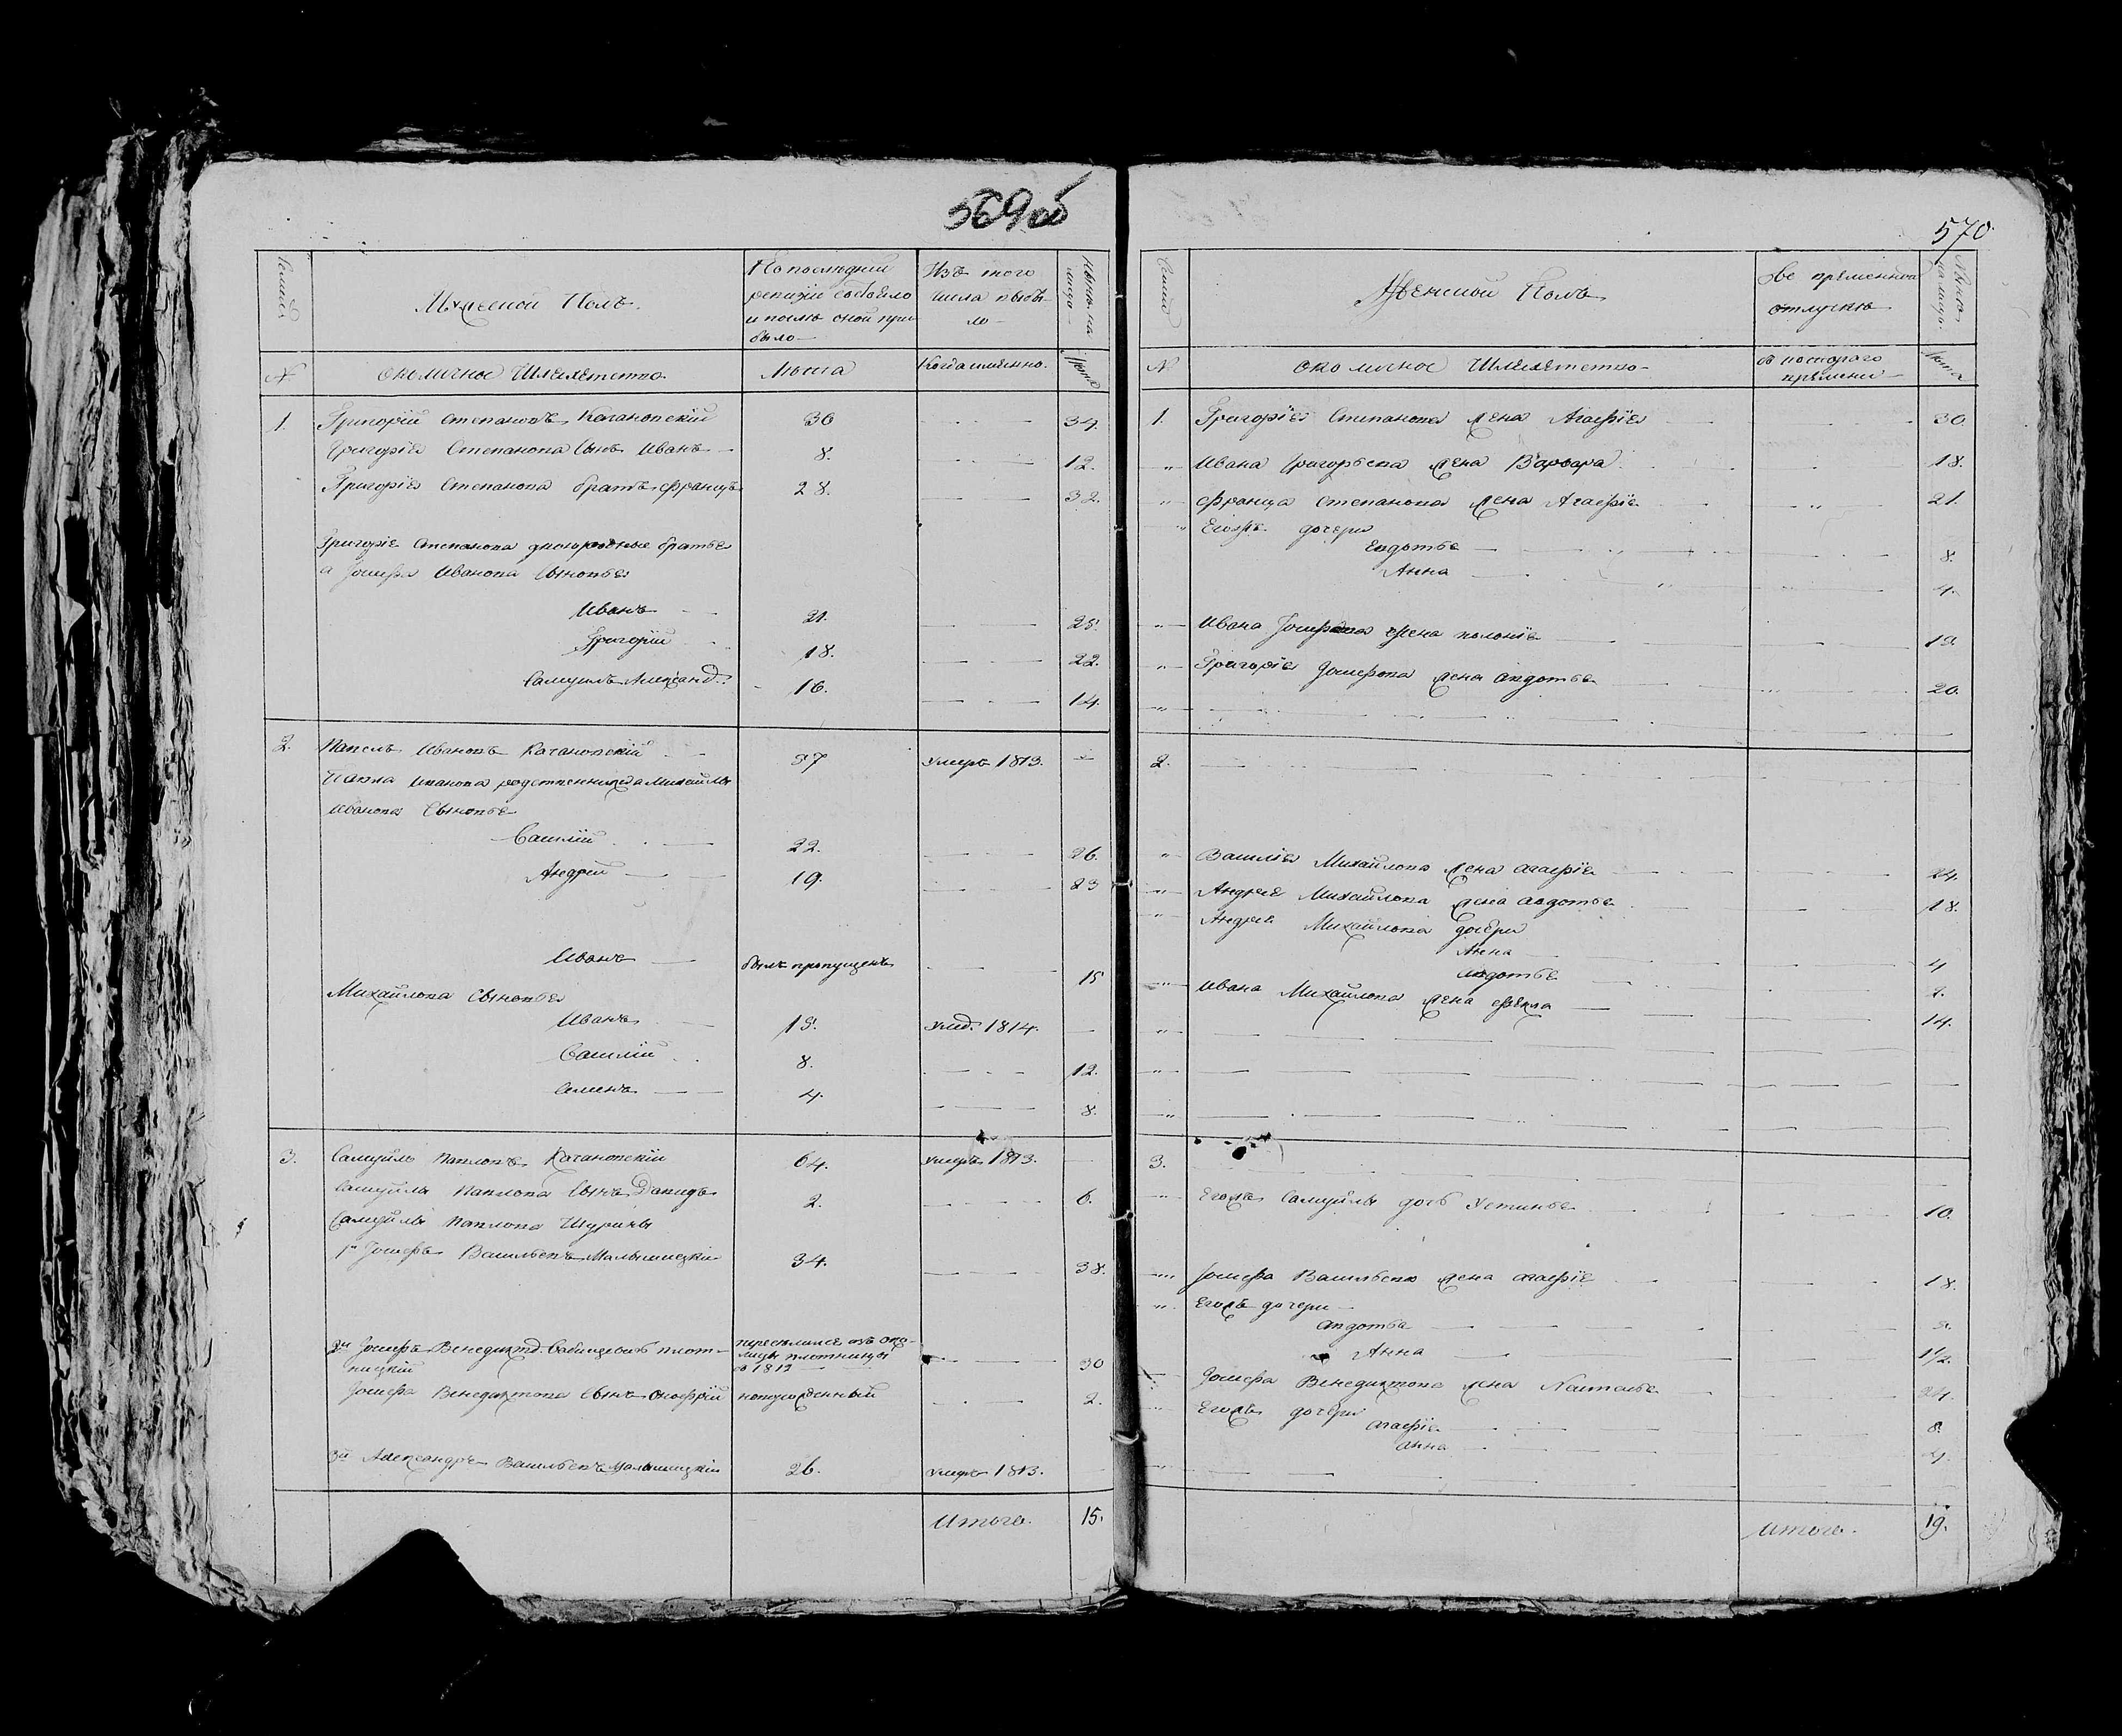 569об
Семьи
Мужеской Полъ.
По последней
ревизіи состояло
и после оной при
было
Изъ того
числа выбы-
ло
Ныне на
лицо
№
околичное Шляхетство
Лета
Когда именно.
Лета
1. Григорій Степановъ Качановскій 30 34.
Григорія Степанова Сынъ Иванъ 8. 12.
Григорія Степанова братъ Францъ 28. 32.
Григорія Степанова двоюродные братья
а Іосифа Иванова Сыновья
Иванъ 21. 25.
Григорій 18. 22.
Самуилъ Александ. 10. 14.
2. Павелъ Ивановъ Качановскій 57 умеръ 1813.
Павла Иванова родственника Михайлы
Иванова Сыновья
Василій 22. 26.
Андрей 19. 23
Иванъ былъ пропущенъ 15
Михайлова Сыновья
Иванъ 15. умер. 1814.
Василій 8. 12.
Семенъ 4. 8.
3. Самуйль Павловъ Качановскій 64. умеръ 1813.
Самуйлы Павлова Сынъ Давидъ 2. 6.
Самуйлы Павлова Шурины
1й Іосифъ Васильевъ Малышицкій 34. 38.
2й Іосифъ Венедиктов. Савицевичъ плот-
ницкій
переселился изъ око-
лицы плотницы
в 1812
30
Іосифа Венедиктова Сынъ Онофрій новорожденный 2.
3й Александръ Васильевъ Малышицкій 26. умеръ 1813.
Итого. 15.
570
Семьи
Женской Полъ
Во временной
отлучке
Ныне
на лицо.
№
околичное Шляхетство
с котораго
времени
Лета
1. Григорія Степанова жена Агафія 30.
Ивана Григорьева жена Варвара 18.
Франца Степанова жена Агафія 21.
Егожъ дочери
Евдотья 8.
Анна 4.
Ивана Іосифова жена полонія 19.
Григорія Іосифова жена Авдотья 20.
2.
Василія Михайлова жена агафія 24.
Андрея Михайлова жена авдотья 18.
Андрея Михайлова дочери
Анна 4
авдотья 2.
Ивана Михайлова жена фекла 14.
3.
Егожъ Самуйлы дочь Устинья 10.
Іосифа Васильева жена агафія 18.
Егожъ дочери
авдотья
Анна 1 1/2.
Іосифа Венедиктова жена Наталья 24.
Егожъ дочери
агафія 8.
анна 4.
Итого. 19.